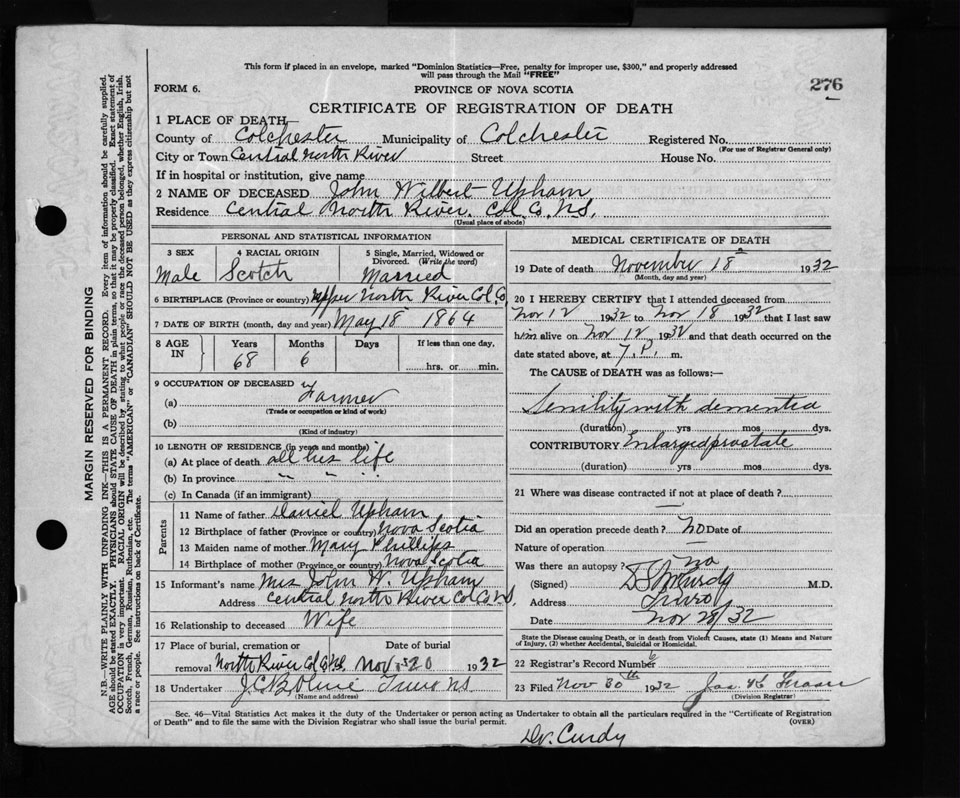 This form if placed in an envelope, marked "Dominion Statistics—Free, penalty for improper use, $300," and properly addressed
will pass through the Mail "FREE"
FORM 6.
PROVINCE OF NOVA SCOTIA
276
CERTIFICATE OF REGISTRATION OF DEATH
1 PLACE OF DEATH—
County of Colchester Municipality of Colchester Registered No.
(For use of Registrar General only)
City or Town Central North River Street House No.
If in hospital or institution, give name
2 NAME OF DECEASED John Wilbert Upham
Residence Central North River. Col. Co. N.S.
(Usual place of abode)
PERSONAL AND STATISTICAL INFORMATION
3 SEX Male
4 RACIAL ORIGIN Scotch
5 Single, Married, Widowed or Divorced. (Write the word) Married
6 BIRTHPLACE (Province or country) Upper North River Col. Co.
7 DATE OF BIRTH (month, day and year) May 18 1864
8 AGE IN
Years Months Days If less than one day,
68 6 hrs. or min.
9 OCCUPATION OF DECEASED
(a) Farmer
(Trade or occupation or kind of work)
(b)
(Kind of industry)
10 LENGTH OF RESIDENCE (in years and months)
(a) At place of death all his life
(b) In province " " "
(c) In Canada (if an immigrant)
Parents
11 Name of father Daniel Upham
12 Birthplace of father (Province or country) Nova Scotia
13 Maiden name of mother Mary Phillips
14 Birthplace of mother (Province or country) Nova Scotia
15 Informant's name Mrs John W. Upham
Address Central North River Col Co N.S.
16 Relationship to deceased Wife
17 Place of burial, cremation or removal North River Col Co NS
Date of burial Nov 20 1932
18 Undertaker Truro N.S.
(Name and address)
MEDICAL CERTIFICATE OF DEATH
19 Date of death November 18 1932
(Month, day and year)
20 I HEREBY CERTIFY that I attended deceased from
Nov 12 1932 to Nov 18 1932 that I last saw
him alive on Nov 12 1932 and that death occurred on the
date stated above, at 7. P. m.
The CAUSE of DEATH was as follows:—
Senility with dementia
(duration) yrs mos dys.
CONTRIBUTORY Enlarged prostate
(duration) yrs mos dys.
21 Where was disease contracted if not at place of death?
—
Did an operation precede death? no Date of
Nature of operation —
Was there an autopsy? no
(Signed) M.D.
Address Truro
Date Nov 28/32
State the Disease causing Death, or in death from Violent Causes, state (1) Means and Nature
of Injury, (2) whether Accidental, Suicidal or Homicidal.
22 Registrar's Record Number
23 Filed Nov 30th 1932 Jas. Fraser
(Division Registrar)
Sec. 46—Vital Statistics Act makes it the duty of the Undertaker or person acting as Undertaker to obtain all the particulars required in the "Certificate of Registration
of Death" and to file the same with the Division Registrar who shall issue the burial permit.
(OVER)
Dr. Curdy
MARGIN RESERVED FOR BINDING
N.B.—WRITE PLAINLY WITH UNFADING INK—THIS IS A PERMANENT RECORD. Every item of information should be carefully supplied.
AGE should be stated EXACTLY. PHYSICIANS should STATE CAUSE OF DEATH in plain terms, so that it may be properly classified. Exact statement of
OCCUPATION is very important. RACIAL ORIGIN will be described by stating to what people or race the deceased person belonged, whether English, Irish,
Scotch, French, German, Russian, Ruthenian, etc. The terms "AMERICAN" or "CANADIAN" SHOULD NOT BE USED as they express citizenship but not
a race or people. See instructions on back of Certificate.